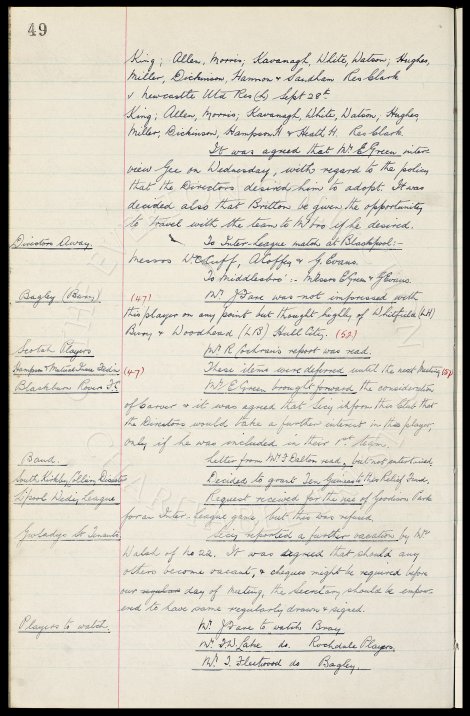 49
King; Allen, Morris; Kavanagh, White, Watson; Hughes,
Miller, Dickinson, Hannon & Sandham Res Clark
v Newcastle Utd Res (h) Sept 28th
King; Allen, Morris; Kavanagh, White, Watson, Hughes,
Miller, Dickinson, Hampson H & Heath H. Res Clark.
It was agreed that Mr E Green inter
view Gee on Wednesday, with regard to the policy
that the Directors desired him to adopt. It was
decided also that Britton be given the opportunity
to travel with the team to M'bro if he desired.
Directors Away. To Inter-League match at Blackpool:-
Messrs W C Cuff, A Coffey & G. Evans.
To Middlesbro':- Messrs E Green & G Evans.
Bagley (Barry) (47) Mr J Fare was not impressed with
this player on any point but thought highly of Whitfield (LH)
Bury & Woodhead (LB) Hull City. (52)
Scotch Players Mr R Cochran's report was read.
(47) These items were deferred until the next Meeting
Blackburn Rovers FC Mr E Green brought forward the consideration
of Carver & it was agreed that Secy inform this Club that
the Directors would take a further interest in this player,
only if he was included in their 1st team.
Band. Letter from Mr J Dalton read, but not entertained.
South Kirkby Colliery Disaster Decided to grant Ten Guineas to this Relief Fund.
L'pool Wed'y League Request received for the use of Goodison Park
for an Inter-League game, but this was refused.
Gwladys St Tenants Secy reported a further vacation by Mrs
Walsh of No 22. It was agreed that should any
others become vacant, & cheques might be required before
our regular day of meeting, the Secretary should be empow-
ered to have same regularly drawn & signed.
Players to watch. Mr J Fare to watch Bray
Mr F.W. Lake do. Rochdale Players.
Mr T. Fleetwood do Bagley.